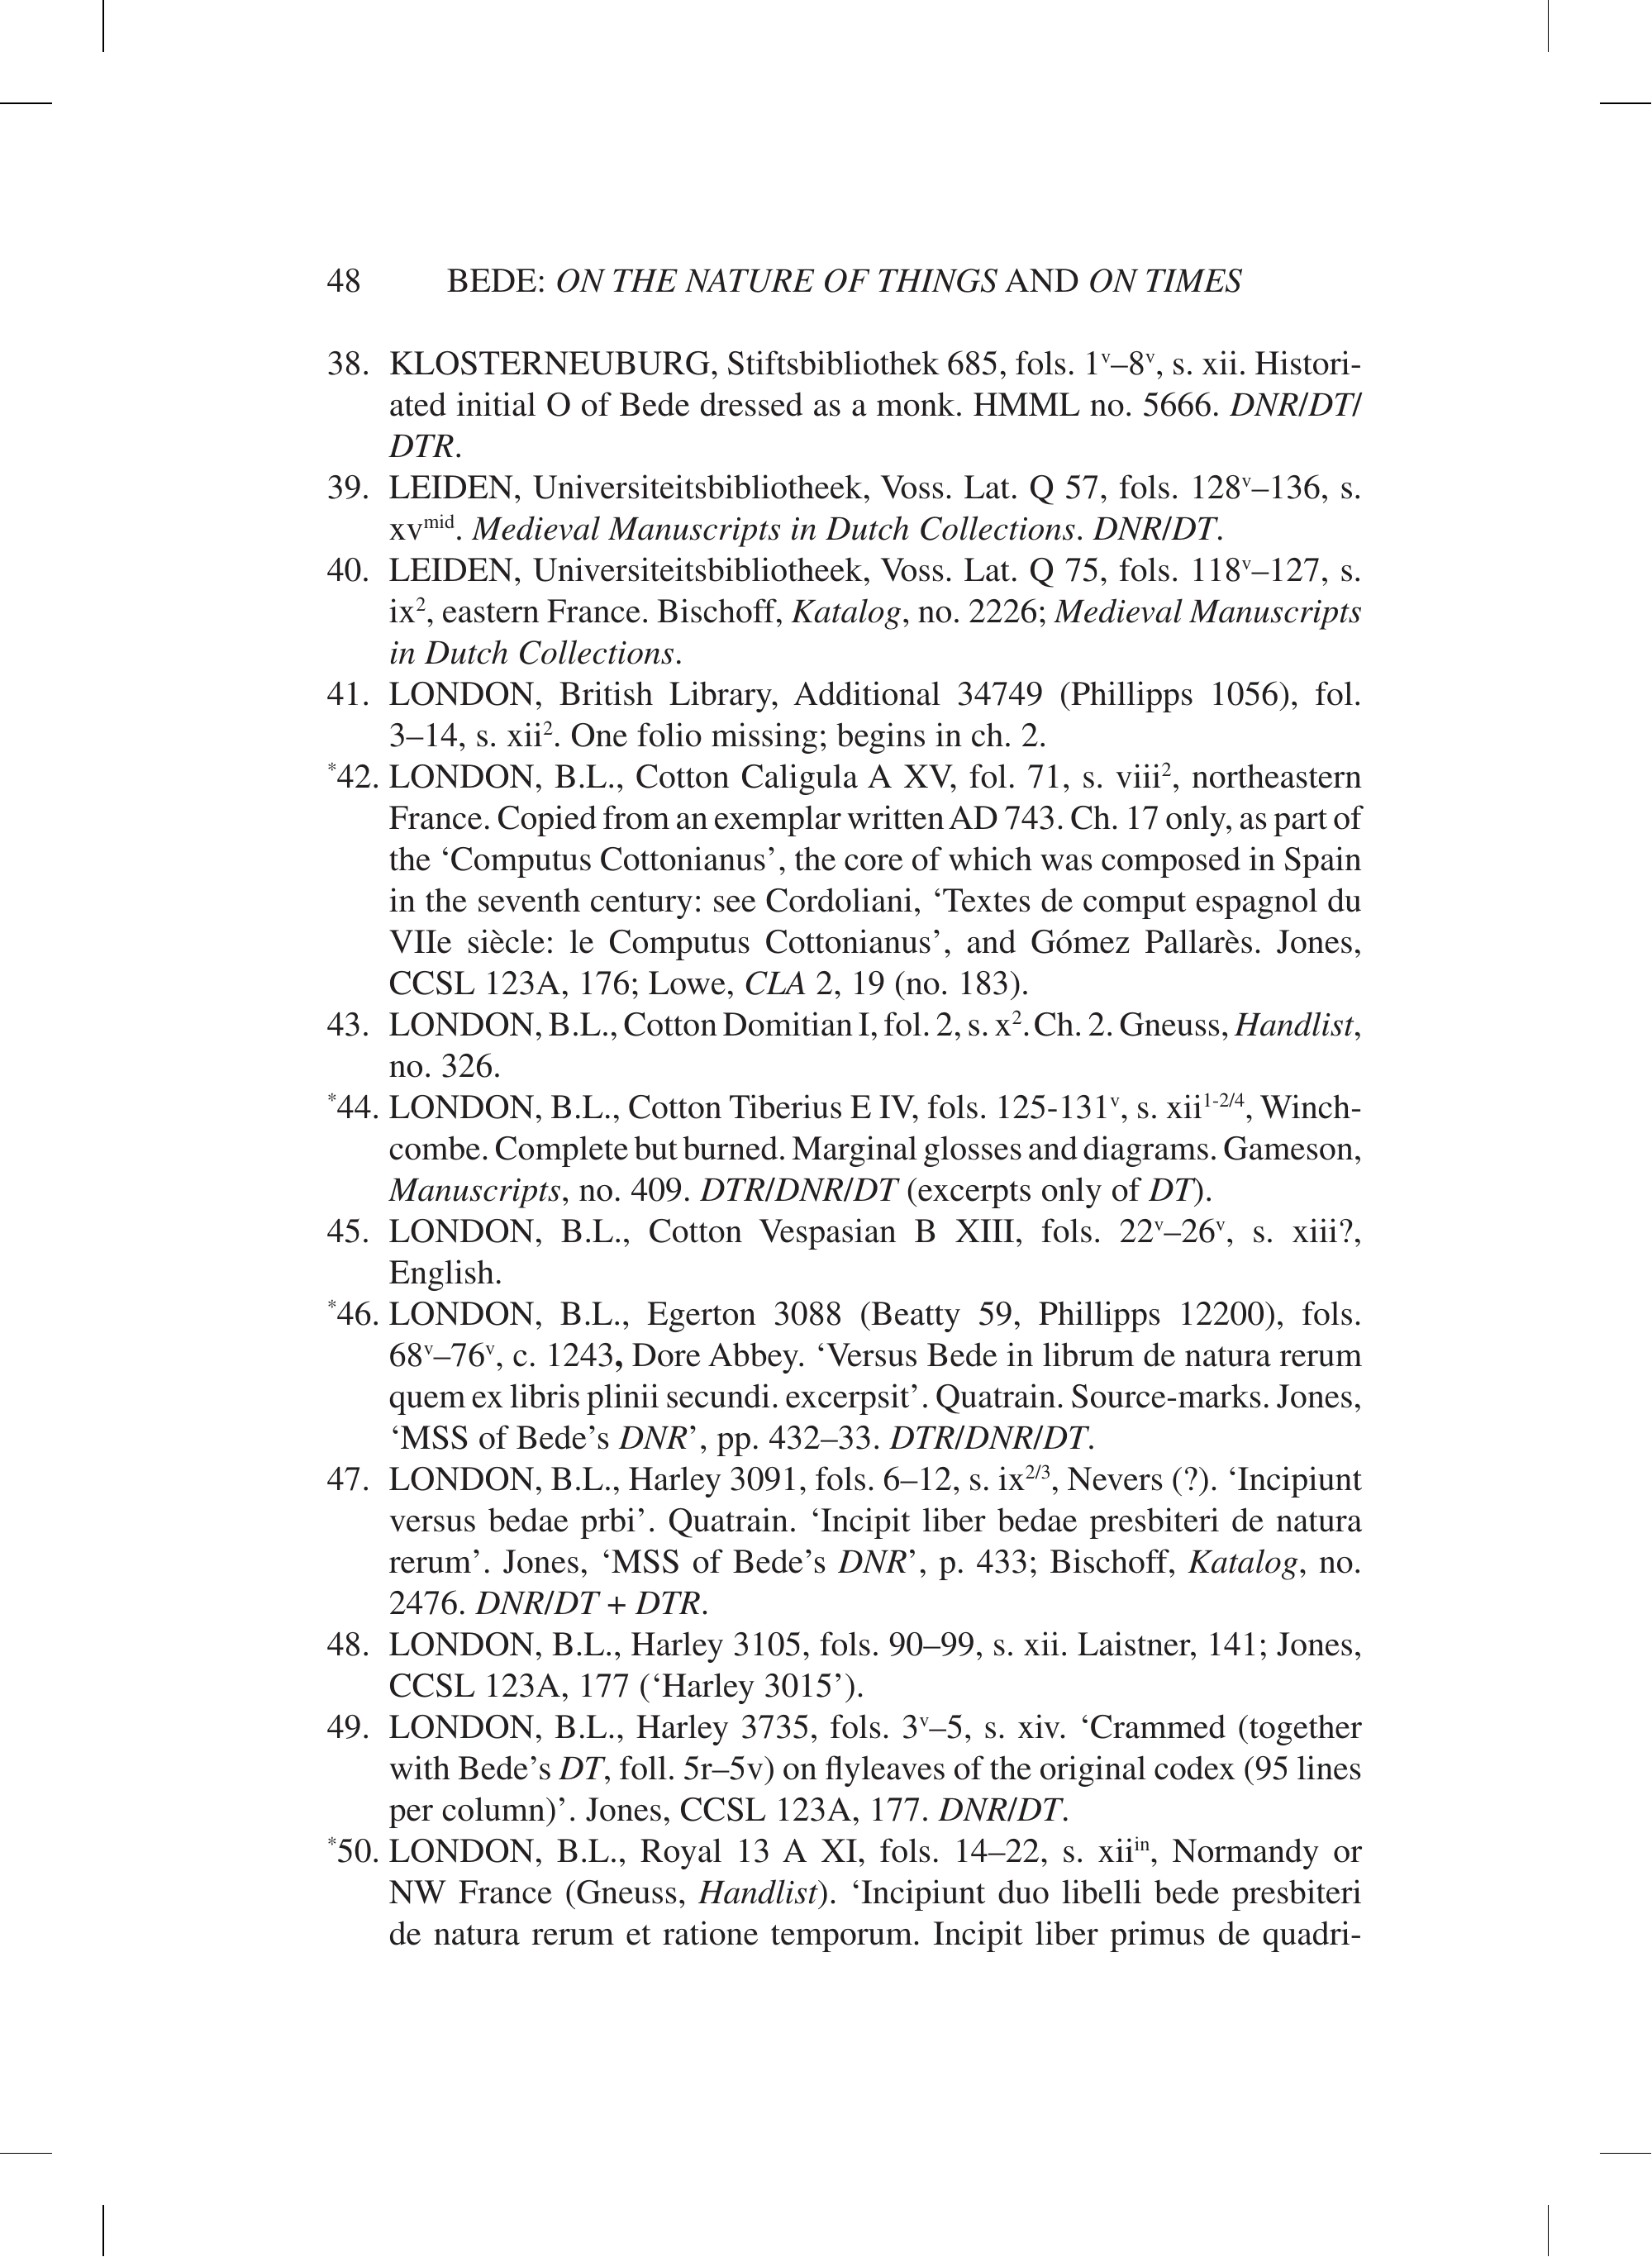 48 BEDE: ON THE NATURE OF THINGS AND ON TIMES
38. KLOSTERNEUBURG, Stiftsbibliothek 685, fols. 1ᵛ–8ᵛ, s. xii. Histori-
ated initial O of Bede dressed as a monk. HMML no. 5666. DNR/DT/
DTR.
39. LEIDEN, Universiteitsbibliotheek, Voss. Lat. Q 57, fols. 128ᵛ–136, s.
xvᵐⁱᵈ. Medieval Manuscripts in Dutch Collections. DNR/DT.
40. LEIDEN, Universiteitsbibliotheek, Voss. Lat. Q 75, fols. 118ᵛ–127, s.
ix², eastern France. Bischoff, Katalog, no. 2226; Medieval Manuscripts
in Dutch Collections.
41. LONDON, British Library, Additional 34749 (Phillipps 1056), fol.
3–14, s. xii². One folio missing; begins in ch. 2.
*42. LONDON, B.L., Cotton Caligula A XV, fol. 71, s. viii², northeastern
France. Copied from an exemplar written AD 743. Ch. 17 only, as part of
the ‘Computus Cottonianus’, the core of which was composed in Spain
in the seventh century: see Cordoliani, ‘Textes de comput espagnol du
VIIe siècle: le Computus Cottonianus’, and Gómez Pallarès. Jones,
CCSL 123A, 176; Lowe, CLA 2, 19 (no. 183).
43. LONDON, B.L., Cotton Domitian I, fol. 2, s. x². Ch. 2. Gneuss, Handlist,
no. 326.
*44. LONDON, B.L., Cotton Tiberius E IV, fols. 125-131ᵛ, s. xii¹⁻²/⁴, Winch-
combe. Complete but burned. Marginal glosses and diagrams. Gameson,
Manuscripts, no. 409. DTR/DNR/DT (excerpts only of DT).
45. LONDON, B.L., Cotton Vespasian B XIII, fols. 22ᵛ–26ᵛ, s. xiii?,
English.
*46. LONDON, B.L., Egerton 3088 (Beatty 59, Phillipps 12200), fols.
68ᵛ–76ᵛ, c. 1243, Dore Abbey. ‘Versus Bede in librum de natura rerum
quem ex libris plinii secundi. excerpsit’. Quatrain. Source-marks. Jones,
‘MSS of Bede’s DNR’, pp. 432–33. DTR/DNR/DT.
47. LONDON, B.L., Harley 3091, fols. 6–12, s. ix²/³, Nevers (?). ‘Incipiunt
versus bedae prbi’. Quatrain. ‘Incipit liber bedae presbiteri de natura
rerum’. Jones, ‘MSS of Bede’s DNR’, p. 433; Bischoff, Katalog, no.
2476. DNR/DT + DTR.
48. LONDON, B.L., Harley 3105, fols. 90–99, s. xii. Laistner, 141; Jones,
CCSL 123A, 177 (‘Harley 3015’).
49. LONDON, B.L., Harley 3735, fols. 3ᵛ–5, s. xiv. ‘Crammed (together
with Bede’s DT, foll. 5r–5v) on flyleaves of the original codex (95 lines
per column)’. Jones, CCSL 123A, 177. DNR/DT.
*50. LONDON, B.L., Royal 13 A XI, fols. 14–22, s. xiiⁱⁿ, Normandy or
NW France (Gneuss, Handlist). ‘Incipiunt duo libelli bede presbiteri
de natura rerum et ratione temporum. Incipit liber primus de quadri-